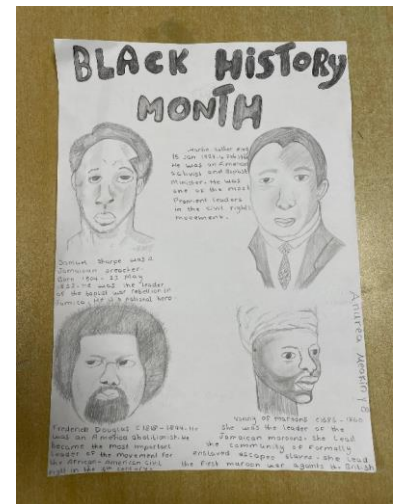 BLACK HISTORY
MONTH
15 Jan
He was an American
activist and Baptist
Minister. He was
one of the most
Prominent leaders
in the civil rights
movement.
Samuel Sharpe was a
Jamaican preacher.
Born 1804 - 23 May
1832. He was the leader
of the baptist war rebellion in
Jamica. He is a national hero
Andrea
Frederick Douglas (1818 - He
was an America abolitionist. He
became the most important
leader of the movement for
the African-American civil
right in the century
Nanny of Maroons
she was the leader of the
Jamaican maroons. she lead
the community of formally
enslaved escapes slaves. she lead
the first maroon war against the British